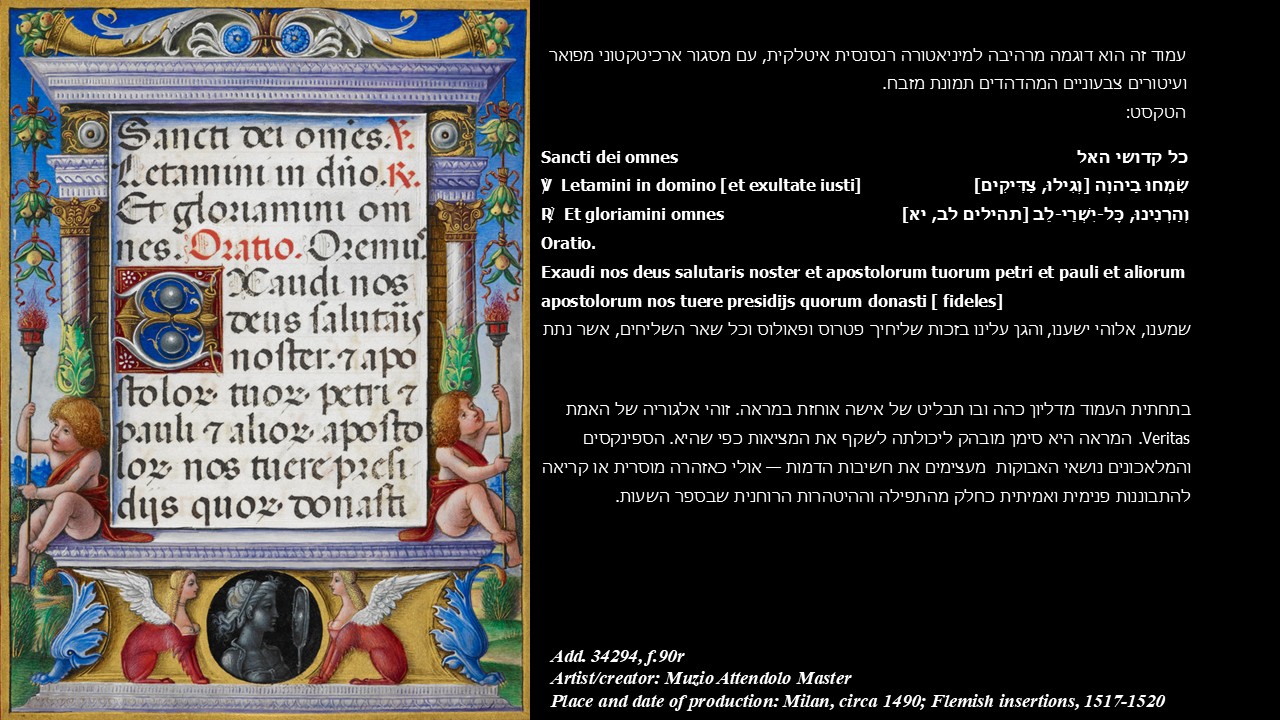 Sancti dei om̅es. ℣.
Letamini in dn̅o. ℟.
Et gloriamini om
nes. Oratio. Oremus̛.
EXaudi nos
deus salutaris
noster. ⁊ apo
stoloꝝ tuoꝝ petri ⁊
pauli ⁊ alioꝝ aposto
loꝝ nos tuere presi
dijs quoꝝ donasti
עמוד זה הוא דוגמה מרהיבה למיניאטורה רנסנסית איטלקית, עם מסגור ארכיטקטוני מפואר
ועיטורים צבעוניים המהדהדים תמונת מזבח.
הטקסט:
Sancti dei omnes כל קדושי האל
℣ Letamini in domino [et exultate iusti] שִׂמְחוּ בַיהוָה [וְגִילוּ, צַדִּיקִים]
℟ Et gloriamini omnes וְהַרְנִינוּ, כָּל-יִשְׁרֵי-לֵב [תהילים לב, יא]
Oratio.
Exaudi nos deus salutaris noster et apostolorum tuorum petri et pauli et aliorum
apostolorum nos tuere presidijs quorum donasti [ fideles]
שמענו, אלוהי ישענו, והגן עלינו בזכות שליחיך פטרוס ופאולוס וכל שאר השליחים, אשר נתת
בתחתית העמוד מדליון כהה ובו תבליט של אישה אוחזת במראה. זוהי אלגוריה של האמת
Veritas. המראה היא סימן מובהק ליכולתה לשקף את המציאות כפי שהיא. הספינקסים
והמלאכונים נושאי האבוקות מעצימים את חשיבות הדמות — אולי כאזהרה מוסרית או קריאה
להתבוננות פנימית ואמיתית כחלק מהתפילה וההיטהרות הרוחנית שבספר השעות.
Add. 34294, f.90r
Artist/creator: Muzio Attendolo Master
Place and date of production: Milan, circa 1490; Flemish insertions, 1517-1520